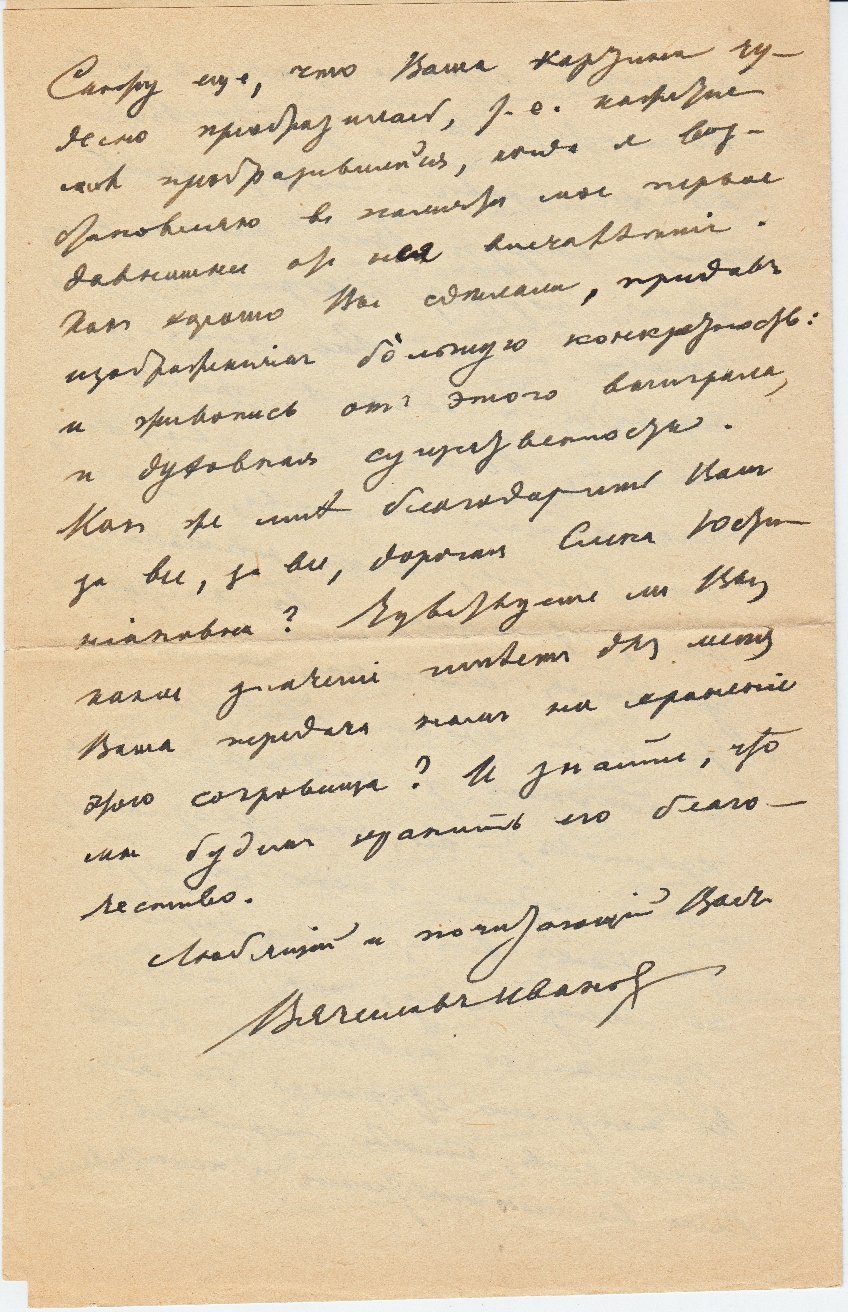 Скажу еще, что Ваша картина чу-
десно преобразилась, т. е. кажется
мнѣ преобразившейся, когда я воз-
становляю въ памяти мое первое
давнишнее отъ нея впечатлѣніе.
Какъ хорошо Вы сдѣлали, придавъ
изображеніямъ бо́льшую конкретность:
и живопись отъ этого выиграла,
и духовная существенность.
Какъ же мнѣ благодарить Васъ
за все, за все, дорогая Елена Юсти-
ніановна? Чувствуете ли Вы,
какое значеніе имѣетъ для меня
Ваша передача намъ на храненіе
этого сокровища? И знайте, что
мы будемъ хранить его благо-
честиво.
Любящій и почитающій Васъ
Вячеславъ Ивановъ